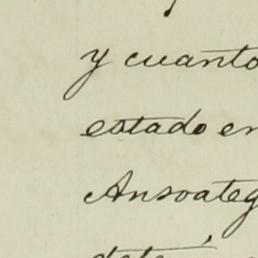 y cuanto
estado en
Ansoateg